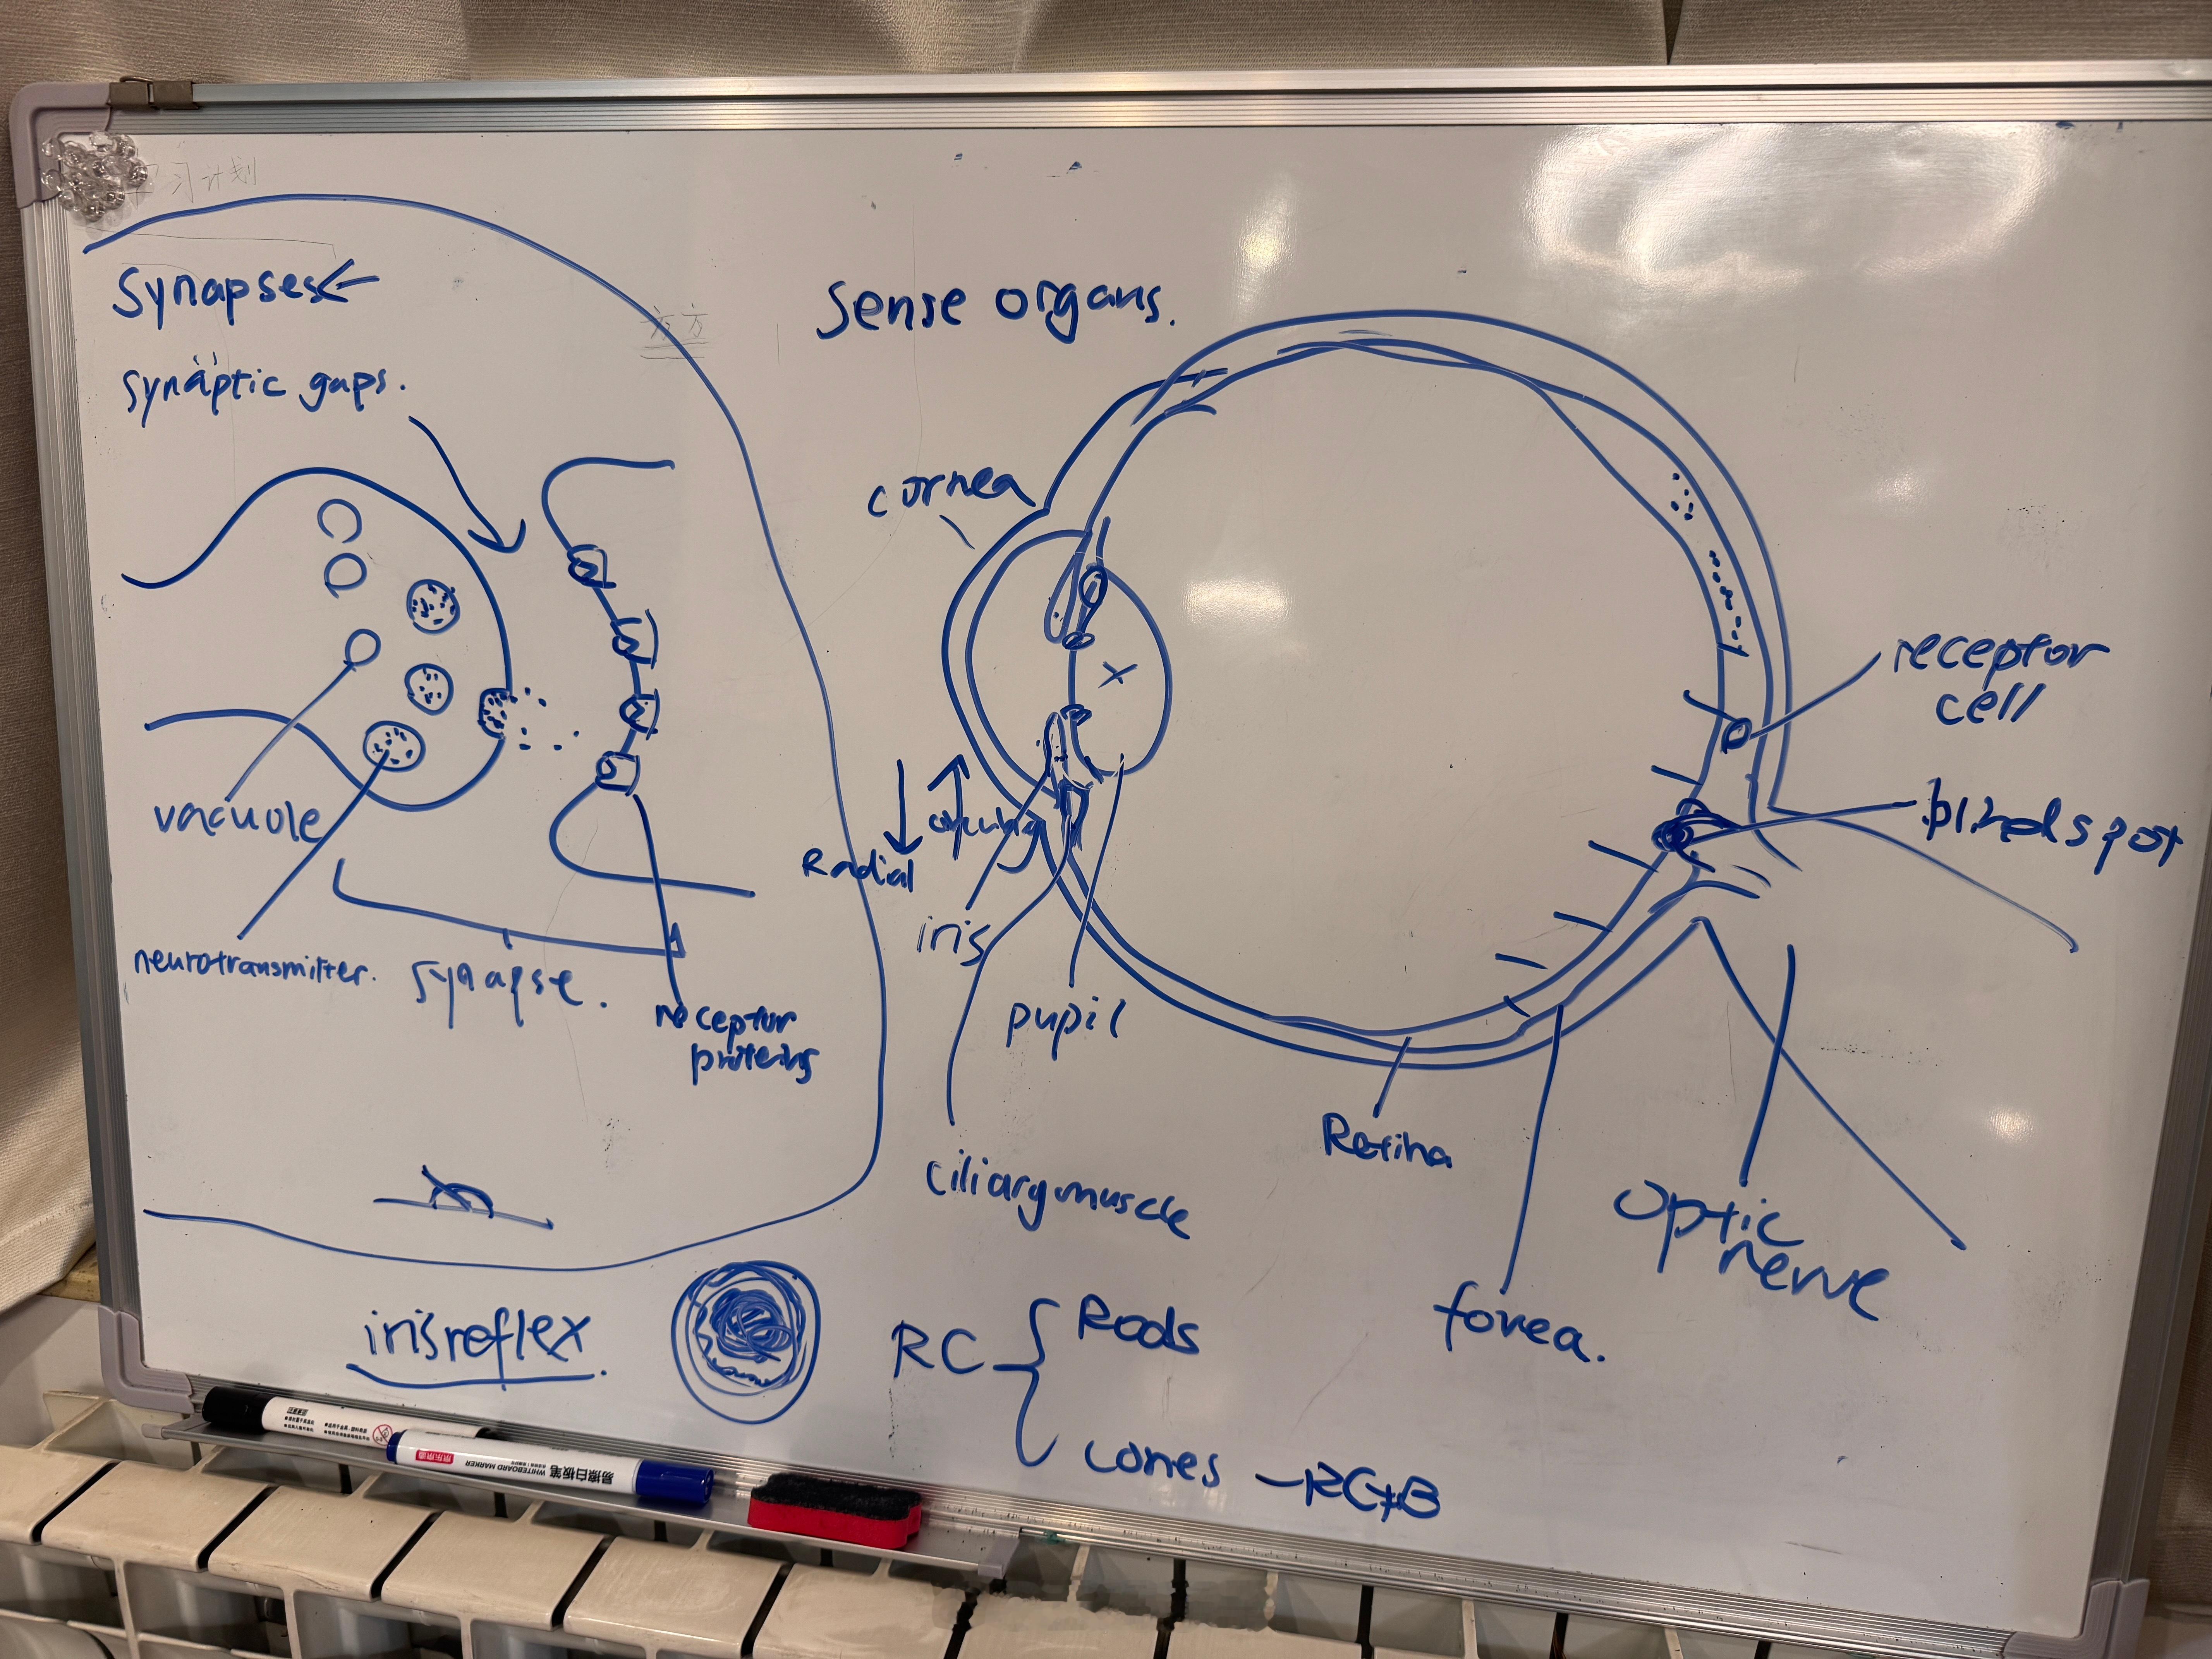 学习计划
Synapses
synaptic gaps.
vacuole
neurotransmitter.
synapse.
receptor
proteins
Sense organs.
cornea
Radial
iris
pupil
ciliary muscle
Retina
fovea.
optic
nerve
receptor
cell
blind spot
iris reflex
RC
Rods
cones - RGB
易擦白板笔
WHITEBOARD MARKER
京东京造